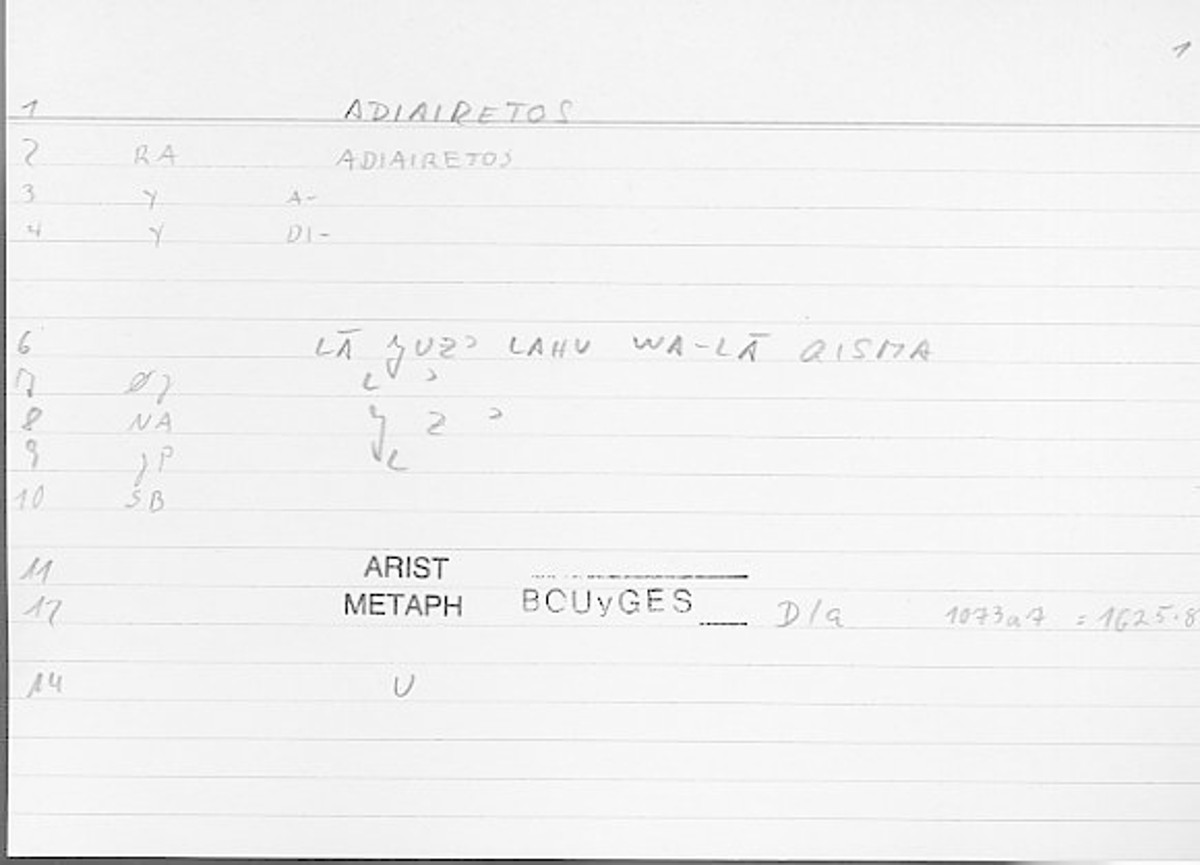 1
1 ADIAIRETOS
2 RA ADIAIRETOS
3 Y A-
4 Y DI-
6 LĀ ȷUZʾ LAHU WA-LĀ QISMA
7 Øȷ L ʾ
8 NA ȷ Z ʾ
9 ȷP L
10 SB
11 ARIST
12 METAPH BCUyGES D/a 1073a7 = 1625.8
14 U